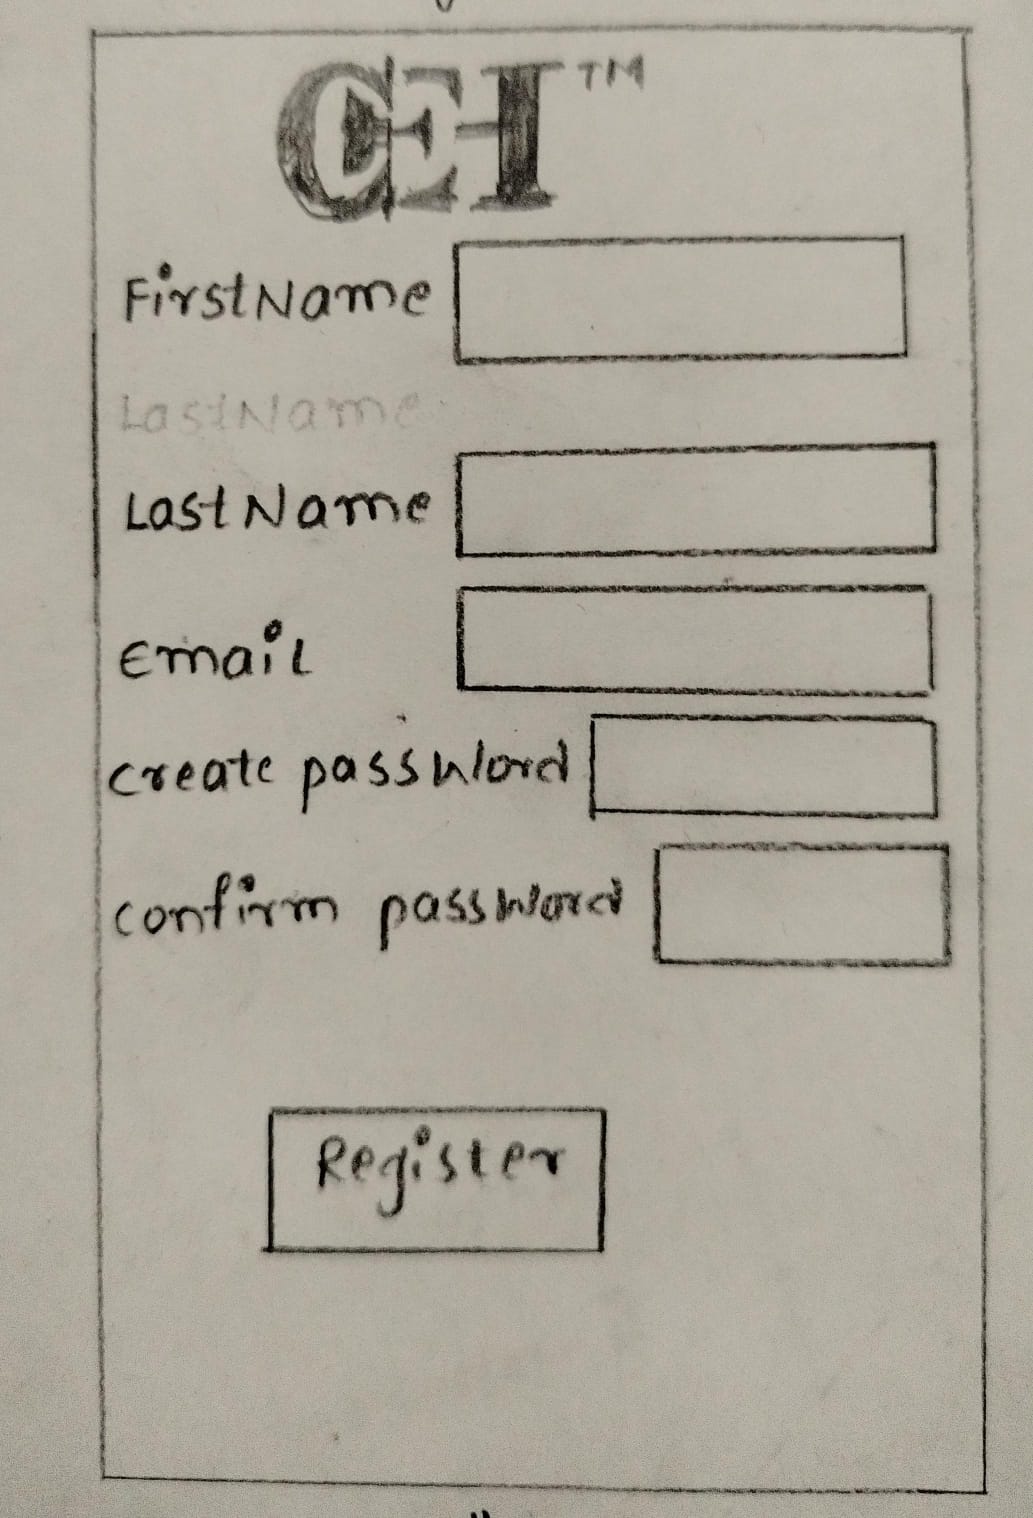 CEH™
FirstName
LastName
LastName
Email
create password
confirm password
Register